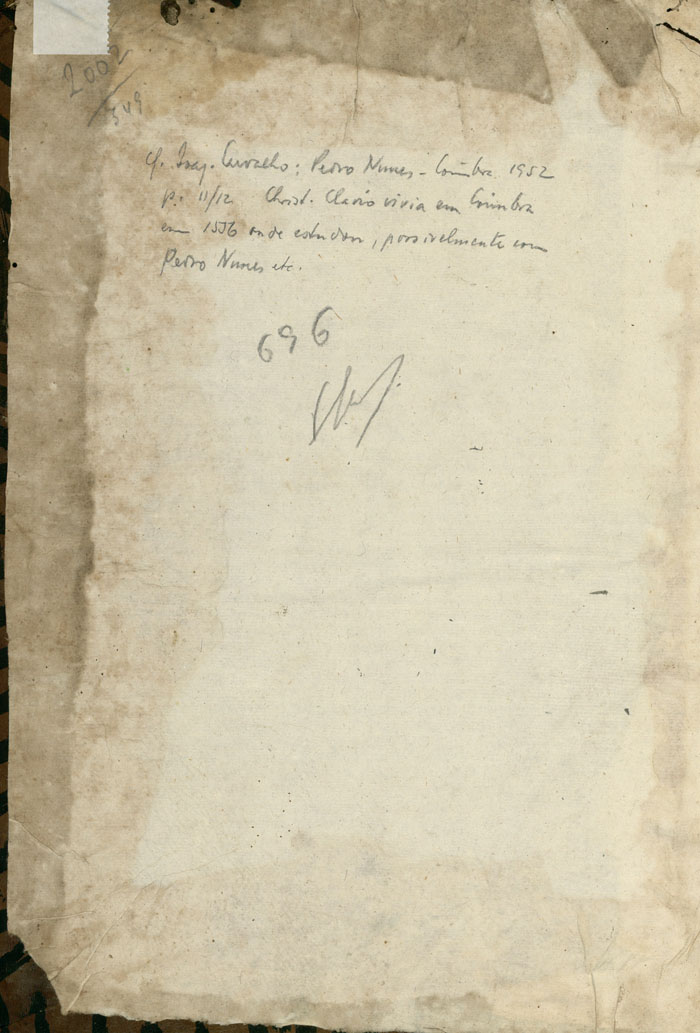 2002
349
cf. Joaq. Carvalho: Pedro Nunes - Coimbra 1952
p. 11/12 Christ. Clavio vivia em Coimbra
em 1556 onde estudou, possivelmente com
Pedro Nunes etc.
696